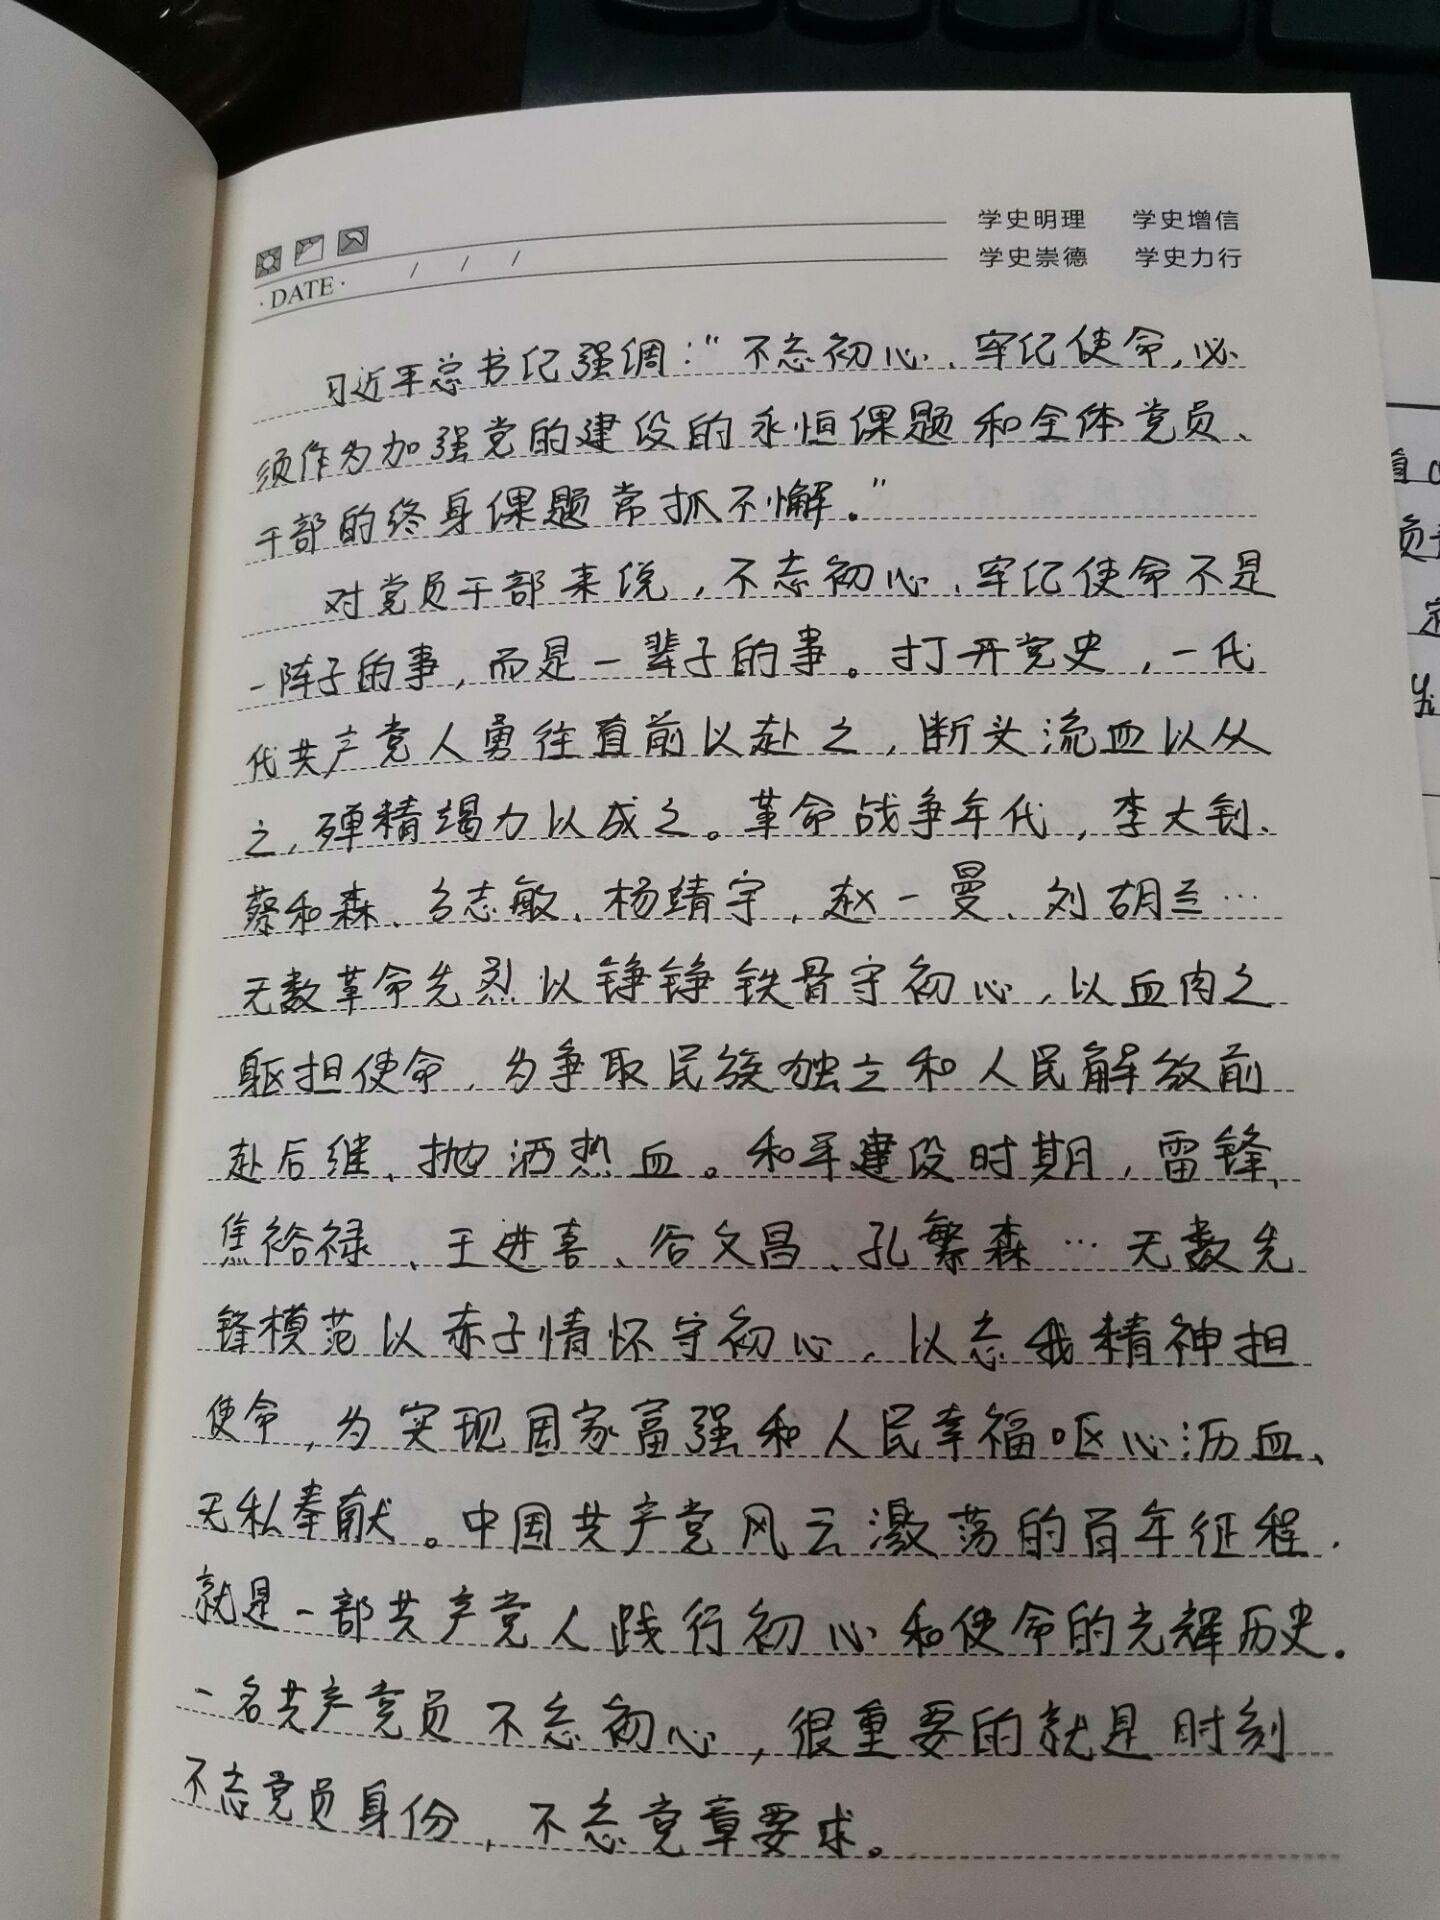 学史明理 学史增信
学史崇德 学史力行
·DATE· / / /
习近平总书记强调：“不忘初心、牢记使命，必
须作为加强党的建设的永恒课题和全体党员、
干部的终身课题常抓不懈。”
对党员干部来说，不忘初心、牢记使命不是
一阵子的事，而是一辈子的事。打开党史，一代
代共产党人勇往直前以赴之，断头流血以从
之，殚精竭力以成之。革命战争年代，李大钊、
蔡和森、方志敏、杨靖宇，赵一曼、刘胡兰…
无数革命先烈以铮铮铁骨守初心，以血肉之
躯担使命，为争取民族独立和人民解放前
赴后继、抛洒热血。和平建设时期，雷锋、
焦裕禄、王进喜、谷文昌、孔繁森…无数先
锋模范以赤子情怀守初心，以忘我精神担
使命，为实现国家富强和人民幸福呕心沥血、
无私奉献。中国共产党风云激荡的百年征程，
就是一部共产党人践行初心和使命的光辉历史。
一名共产党员不忘初心，很重要的就是时刻
不忘党员身份，不忘党章要求。